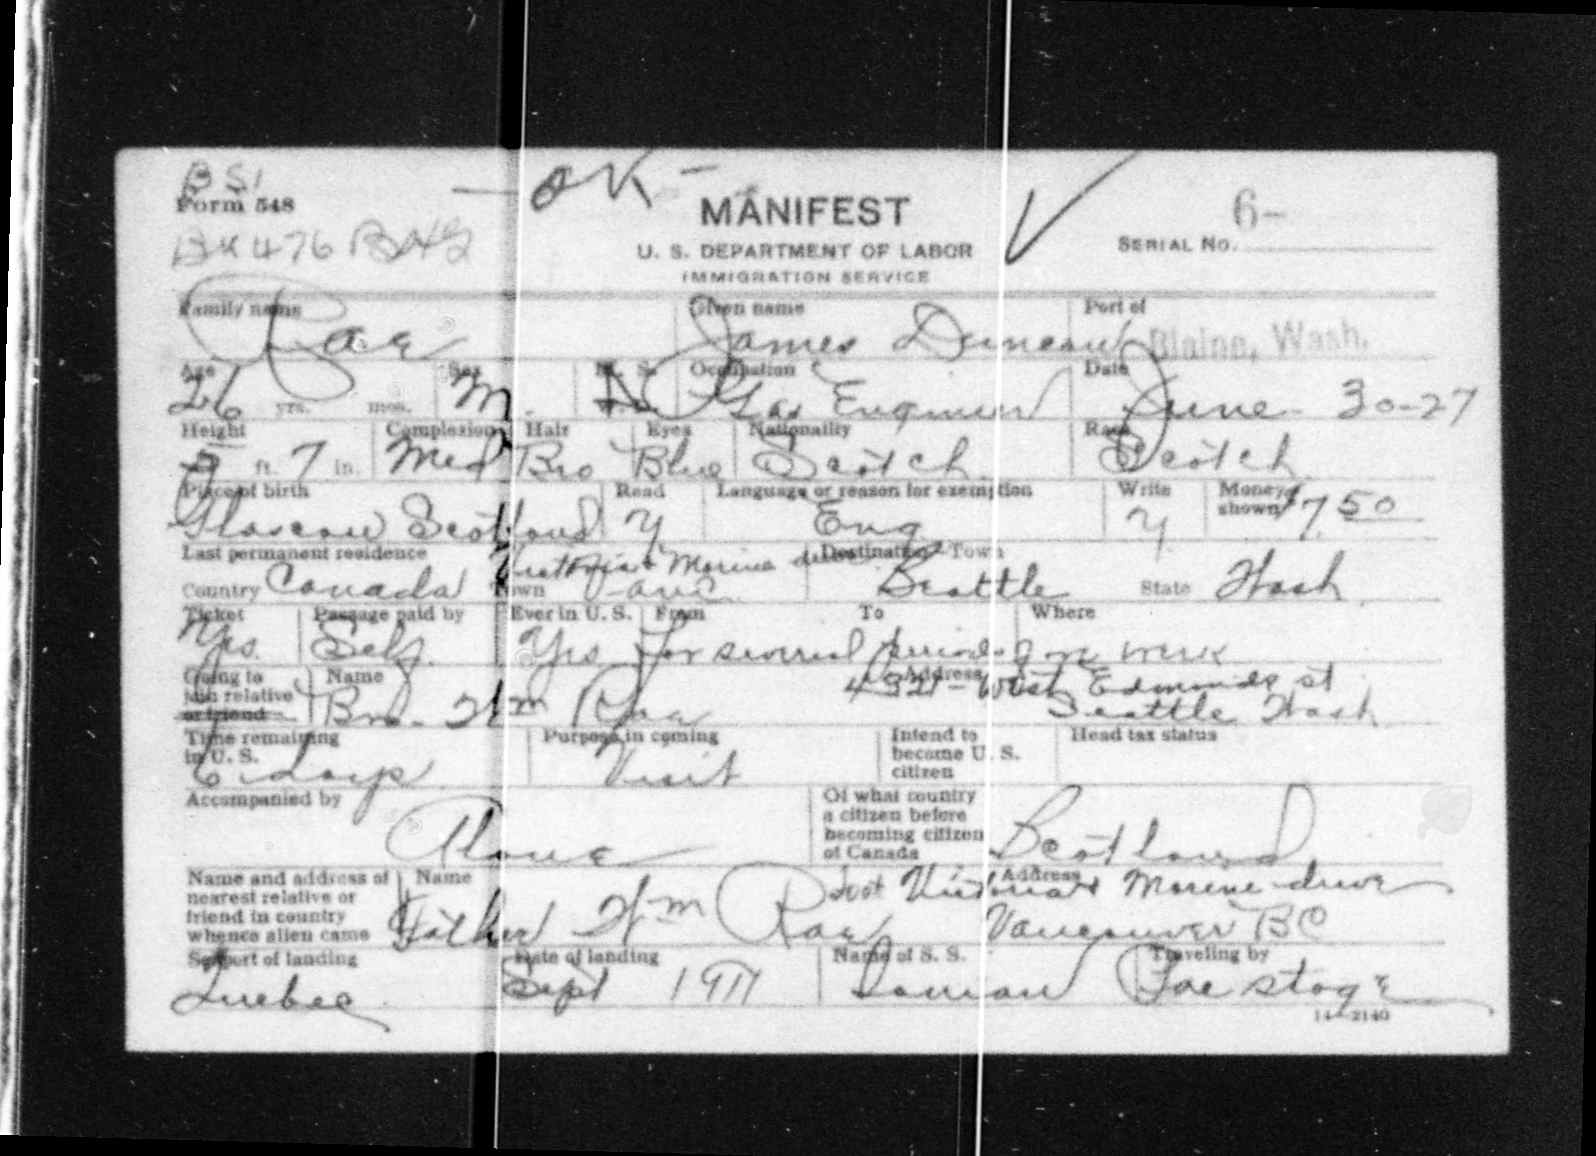 BSI
— OK —
Form 548
MANIFEST
6-
SERIAL No.
476
U. S. DEPARTMENT OF LABOR
IMMIGRATION SERVICE
Family name Given name Port of
Rae James Duncan Blaine, Wash.
Age Sex M. S. Occupation Date
26 yrs. mos. M. Gas Engineer June 30-27
Height Complexion Hair Eyes Nationality Race
5 ft. 7 in. Med Bro Blue Scotch Scotch
Place of birth Read Language or reason for exemption Write Money shown
Glascow Scotland Y Eng Y $7.50
Last permanent residence Destination Town
Victoria & Marine drive
Country Canada Town Vanc. Seattle State Wash
Ticket Passage paid by Ever in U. S. From To Where
Yes. Self. Yes For several periods on work
Going to join relative or friend Name Address
Bro. Wm Rae 4321-West Edmunds st
Seattle Wash
Time remaining in U. S. Purpose in coming Intend to become U. S. citizen Head tax status
6 days Visit
Accompanied by Of what country a citizen before becoming citizen of Canada
Alone Scotland
Name and address of nearest relative or friend in country whence alien came Name Address
Foot Victoria & Marine drive
Father Wm Rae Vancouver BC
Seaport of landing Date of landing Name of S. S. Traveling by
Quebec Sept 1911 Pac stage
14—2140